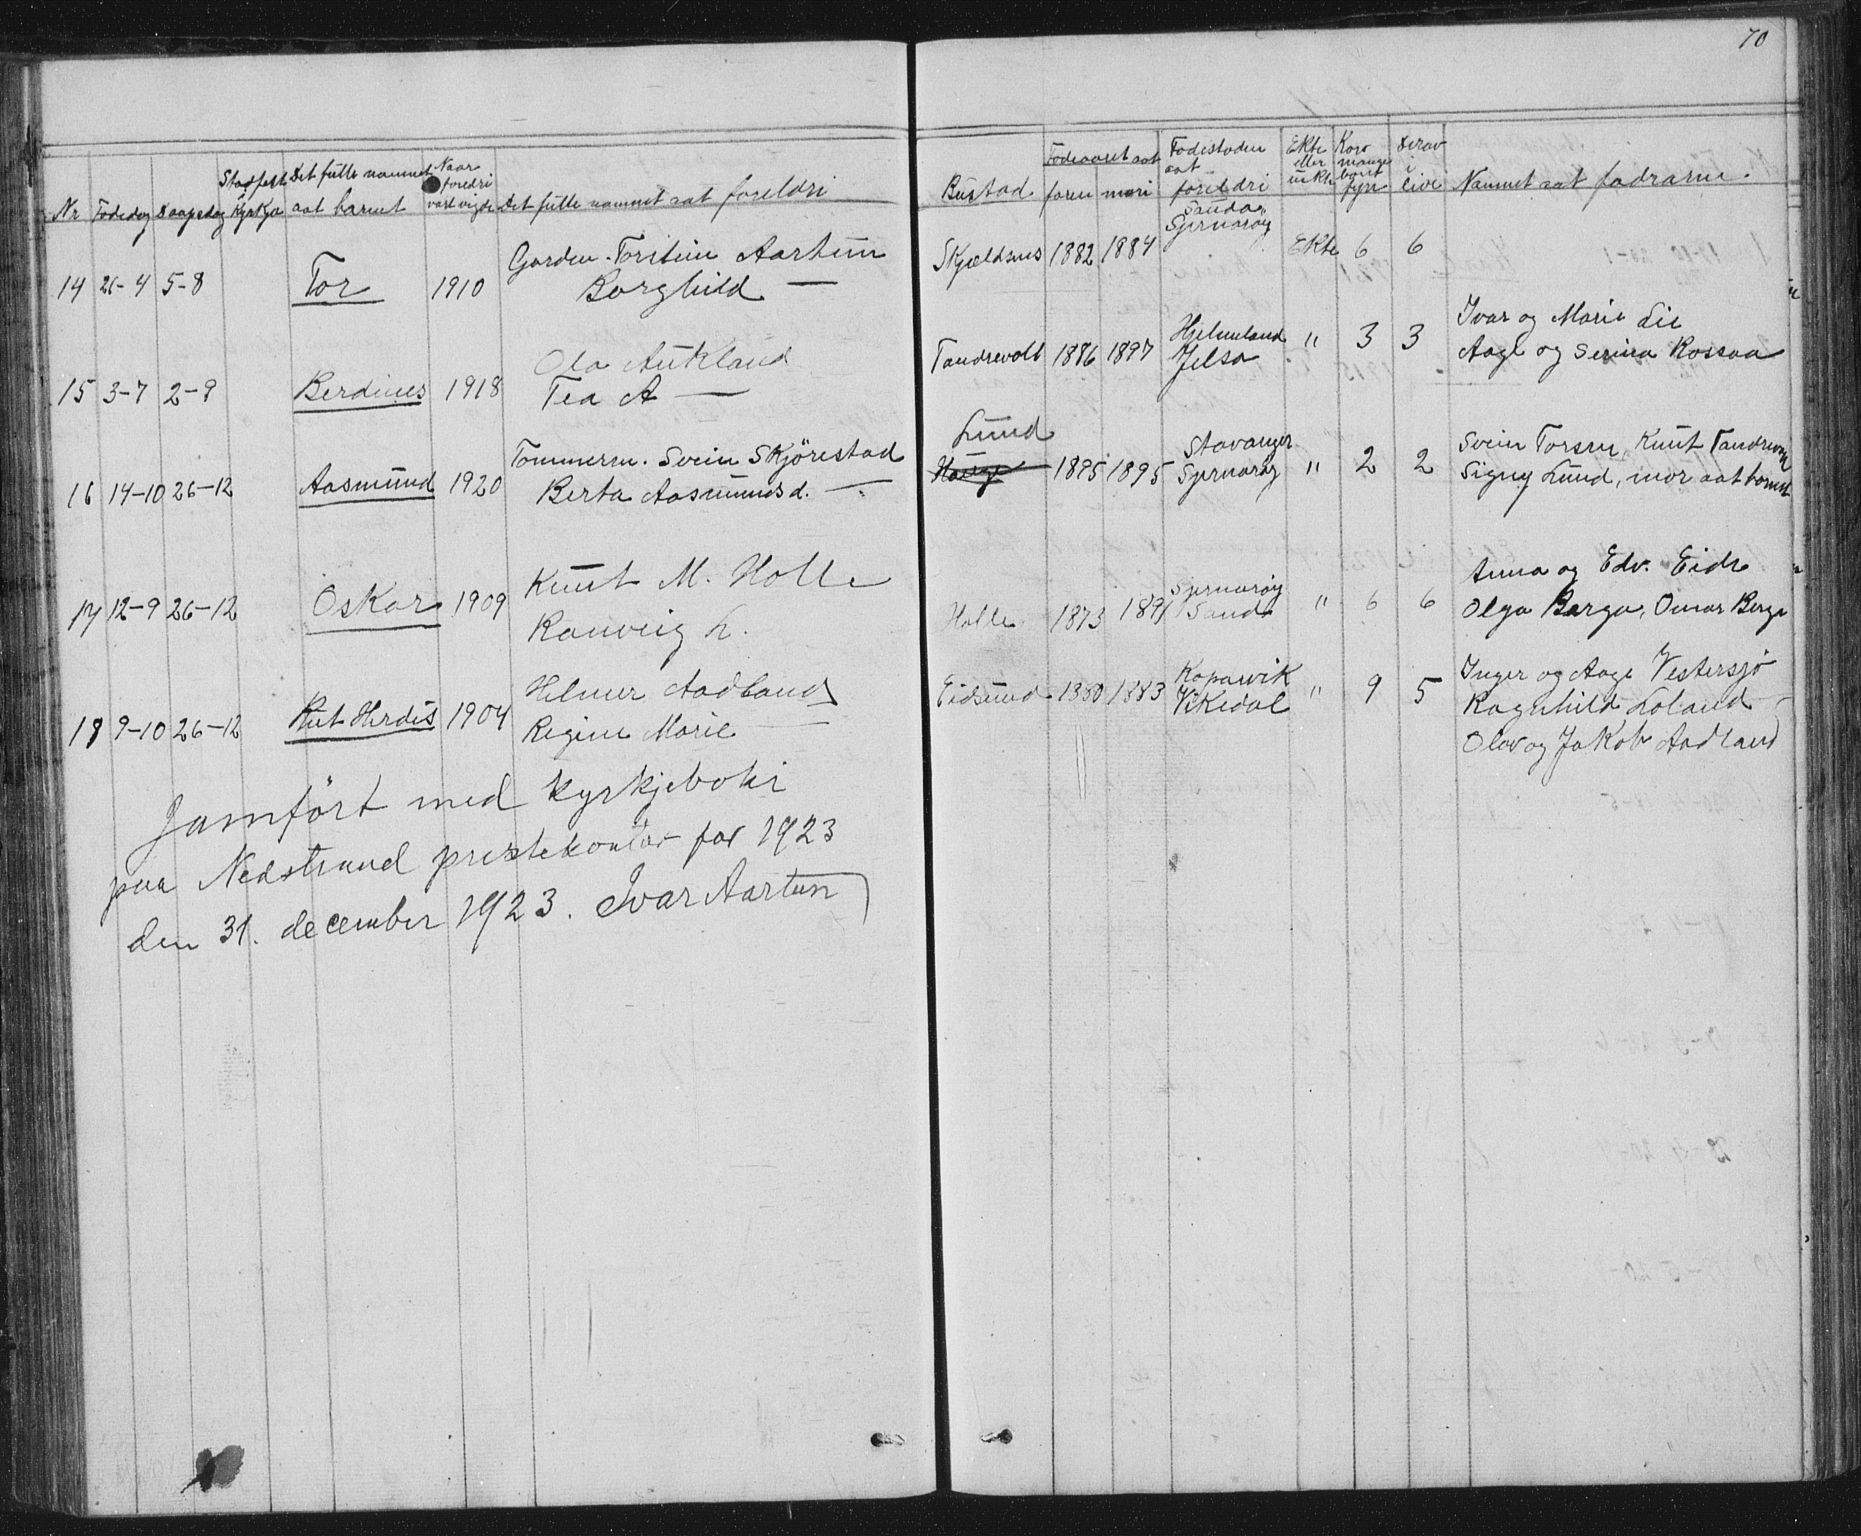 70
Nr Fødedag Daapsdag Stadfest i Kyrkja Det fulle namnet aat barnet Naar foreldri vart vigde Det fulle namnet aat foreldri
Bustad Fødeaaret aat faren mori Fødestaden aat foreldri Ekte eller uekte Kor mange born fyrr Derav i live Namnet aat fadrarne.
14 26-4 5-8 Tor 1910 Garden. Torstein Aartun
Borghild —
Skjældsnes 1882 1884 Sauda Sjernarøy Ekte 6 6
15 3-7 2-9 Berdines 1918 Ola Aukland
Tea A —
Tandrevold 1886 1897 Hjelmeland Jelsa " 3 3 Ivar og Marie Lie
Aage og Serina Rossaa
16 14-10 26-12 Aasmund 1920 Tømmerm. Svein Skjørestad
Berta Aasmundsd. —
Lund
Hauge 1895 1895 Stavanger Sjernarøy " 2 2 Svein Torsen, Knut Tandrevold
Signy Lund, mor aat barnet
17 12-9 26-12 Oskar 1909 Knut M. Halle
Ranveig L.
Halle 1873 1891 Sjernarøy Sand " 6 6 Anna og Edv. Eide
Olga Berge, Omar Berge
18 9-10 26-12 Rut Herdis 1904 Helmer Aadland
Regine Marie —
Eidsund 1880 1883 Kopavik Vikedal " 9 5 Inger og Aage Vestersjø
Ragnhild Loland
Olav og Jakob Aadland
Jamført med kyrkjeboki
paa Nedstrand prestekontor for 1923
den 31. december 1923. Ivar Aartun